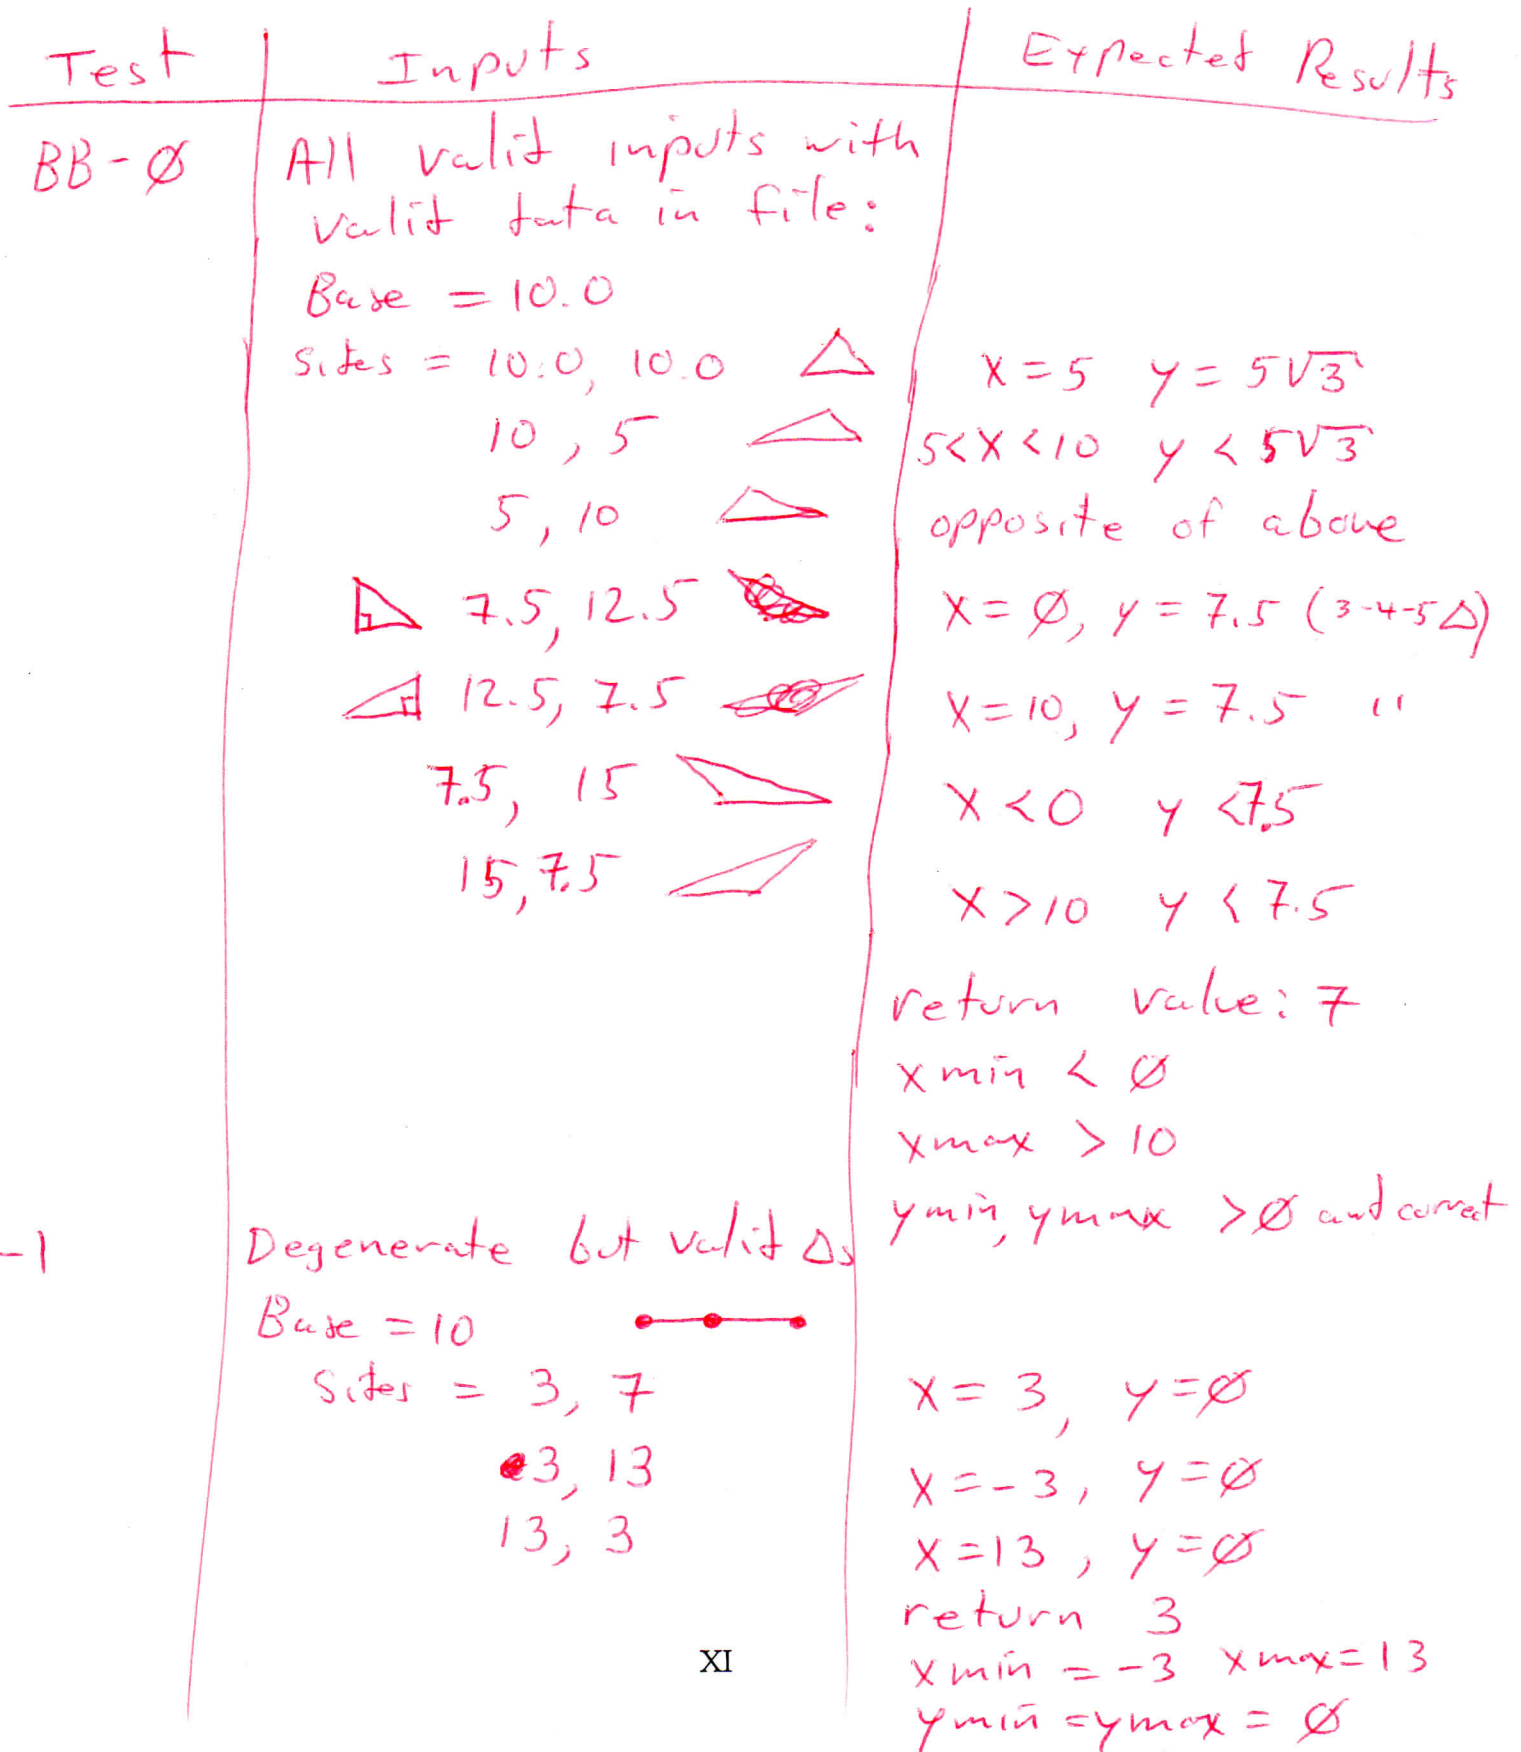 Test Inputs Expected Results
BB-Ø All valid inputs with
valid data in file:
Base = 10.0
Sides = 10.0, 10.0 x=5 y=5√3
10, 5 5<x<10 y<5√3
5, 10 opposite of above
7.5, 12.5 x=Ø, y=7.5 (3-4-5 Δ)
12.5, 7.5 x=10, y=7.5 "
7.5, 15 x<0 y<7.5
15, 7.5 x>10 y<7.5
return value: 7
xmin < Ø
xmax > 10
ymin, ymax >Ø and correct
-1 Degenerate but valid Δs
Base = 10
Sides = 3, 7 x=3, y=Ø
3, 13 x=-3, y=Ø
13, 3 x=13, y=Ø
return 3
xmin = -3 xmax=13
ymin =ymax = Ø
XI